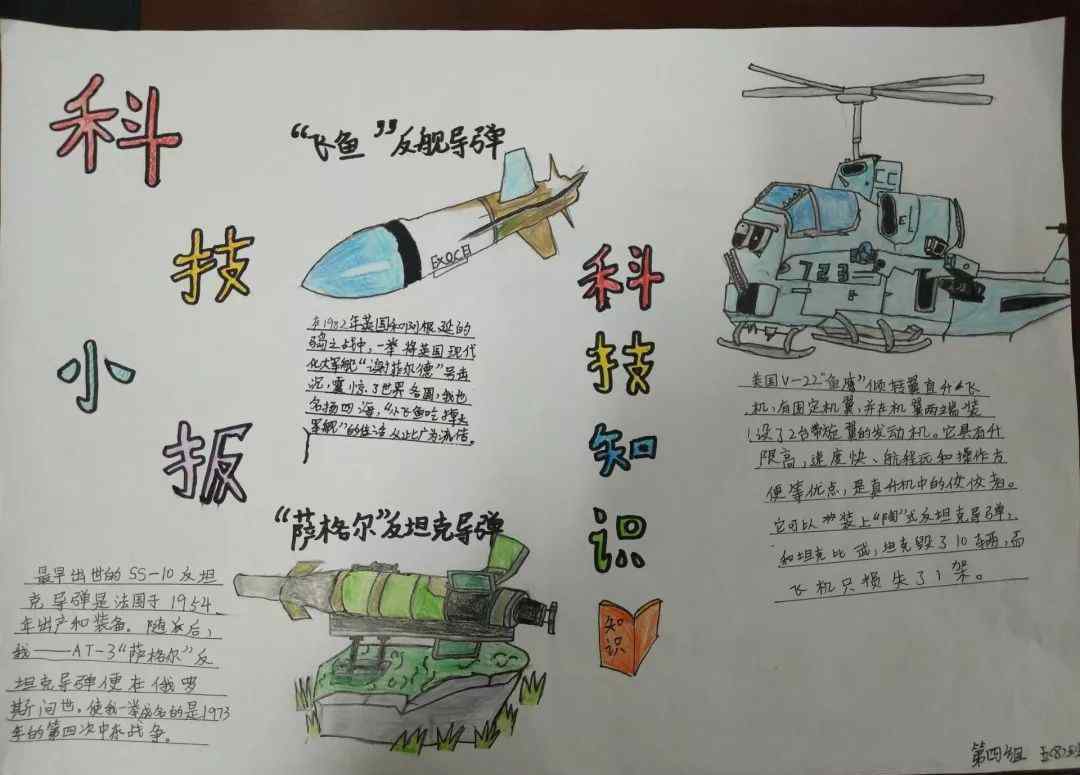 科
技
小
报
“飞鱼”反舰导弹
EXOCE
在1982年英国和阿根廷的
岛之战中,一举将英国现代
化大军舰“谢菲尔德”号击
沉,震惊了世界各国,我也
名扬四海,“小飞鱼吃掉大
军舰”的佳话从此广为流传。
“萨格尔”反坦克导弹
最早出世的SS-10反坦
克导弹是法国于1954
年出产和装备。随后,
我——AT-3“萨格尔”反
坦克导弹便在俄罗
斯问世。使我一举成名的是1973
年的第四次中东战争。
科
技
知
识
知
识
723
美国V-22“鱼鹰”倾转翼直升飞
机,有固定机翼,并在机翼两端装
设了2台带旋翼的发动机。它具有升
限高,速度快、航程远和操作方
便等优点,是直升机中的佼佼者。
它可以装上“陶”式反坦克导弹,
和坦克比武,坦克毁了10辆,而
飞机只损失了1架。
第四组 五(8)班